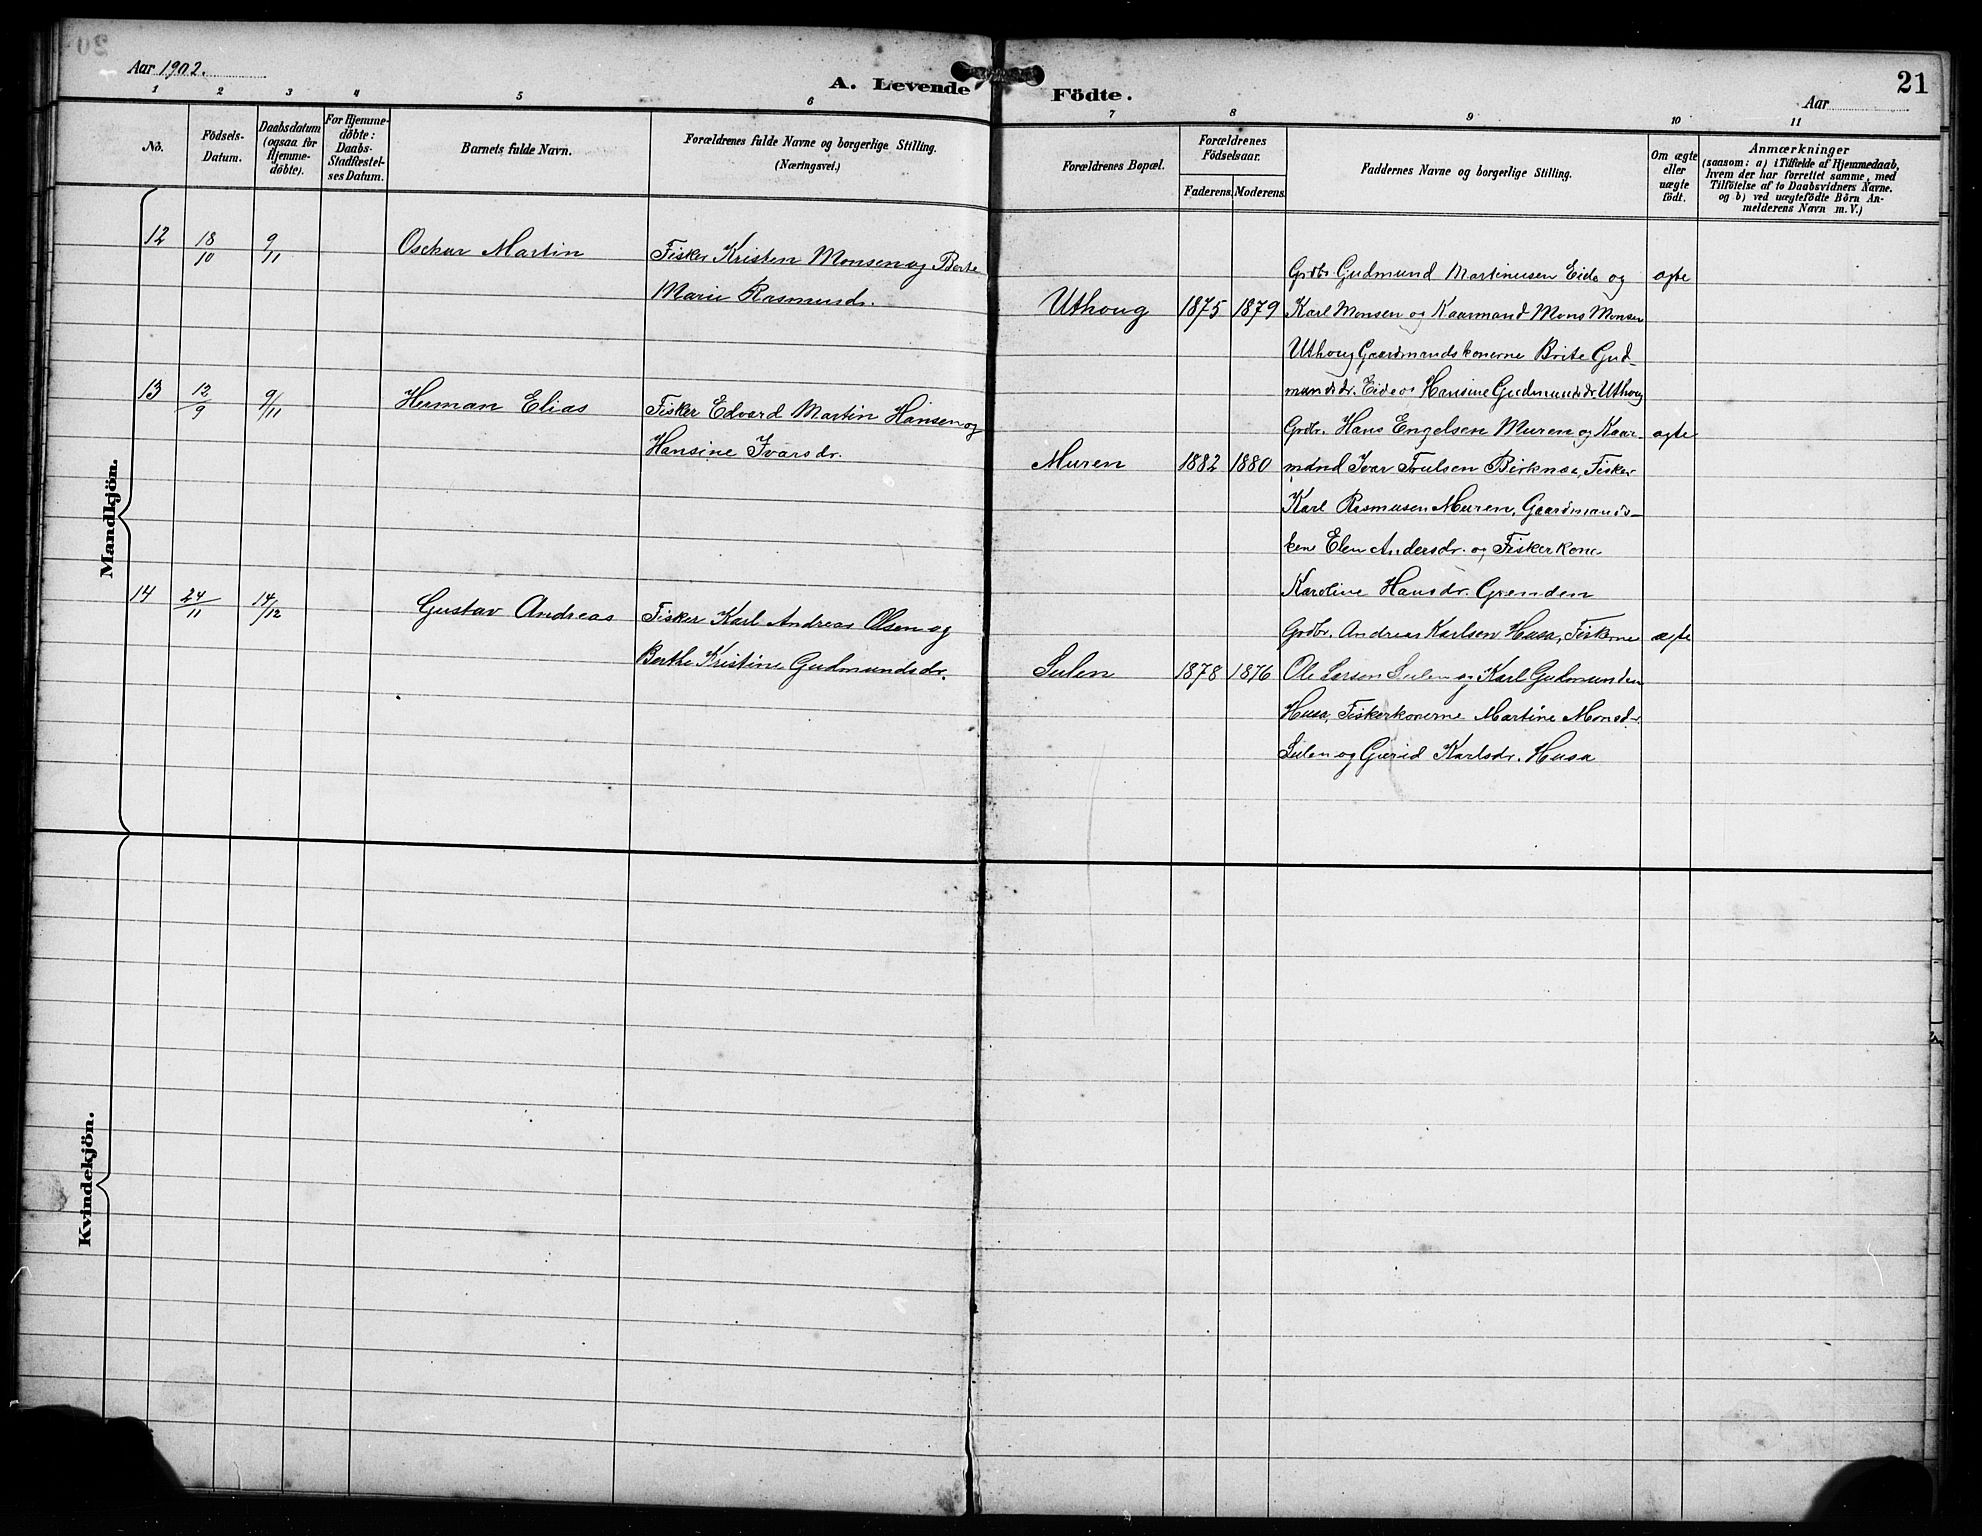 Aar 1902.
A. Levende Födte.
21
Aar
1 2 3 4 5 6 7 8 9 10 11
No.
Födsels-
Datum.
Daabsdatum
(ogsaa for
Hjemme-
döbte).
For Hjemme-
döbte:
Daabs-
Stadfæstel-
ses Datum.
Barnets fulde Navn.
Forældrenes fulde Navne og borgerlige Stilling.
(Næringsvei.)
Forældrenes Bopæl.
Forældrenes
Födselsaar.
Faderens. Moderens.
Faddernes Navne og borgerlige Stilling.
Om ægte
eller
uægte
født.
Anmærkninger
(saasom: a) i Tilfælde af Hjemmedaab,
hvem der har forrettet samme, med
Tilføielse af to Daabsvidners Navne.
og b) ved uægtefödte Börn An-
melderens Navn m. V.)
Mandkjön.
12 18/10 9/11 Osckar Martin
Fisker Kristen Monsen og Berte
Marie Rasmusdr.
Uthoug 1875 1879
Grdbr Gudmund Martinusen Eide og
Karl Monsen og Kaarmand Mons Monsen
Uthoug Gaardmandskonerne Brite Gud-
mundsdr. Eide og Hansine Gudmundsdr Uthoug
ægte
13 12/9 9/11 Herman Elias
Fisker Edvard Martin Hansen og
Hansine Ivarsdr.
Muren 1882 1880
Grdbr. Hans Engelsen Muren og Kaar-
mand Ivar Trulsen Birknæs, Fisker
Karl Rasmusen Muren, Gaardmands-
kone Elen Andersdr. og Fiskerkone
Karoline Hansdr. Grenden
ægte
14 24/11 14/12 Gustav Andreas
Fisker Karl Andreas Olsen og
Berthe Kristine Gudmundsdr.
Sulen 1878 1876
Grdbr. Andreas Karlsen Husa, Fiskerne
Ole Larsen Sulen og Karl Gudmundsen
Husa, Fiskerkonerne Martine Monsdr.
Sulen og Gurid Karlsdr. Husa
ægte
Kvindekjön.